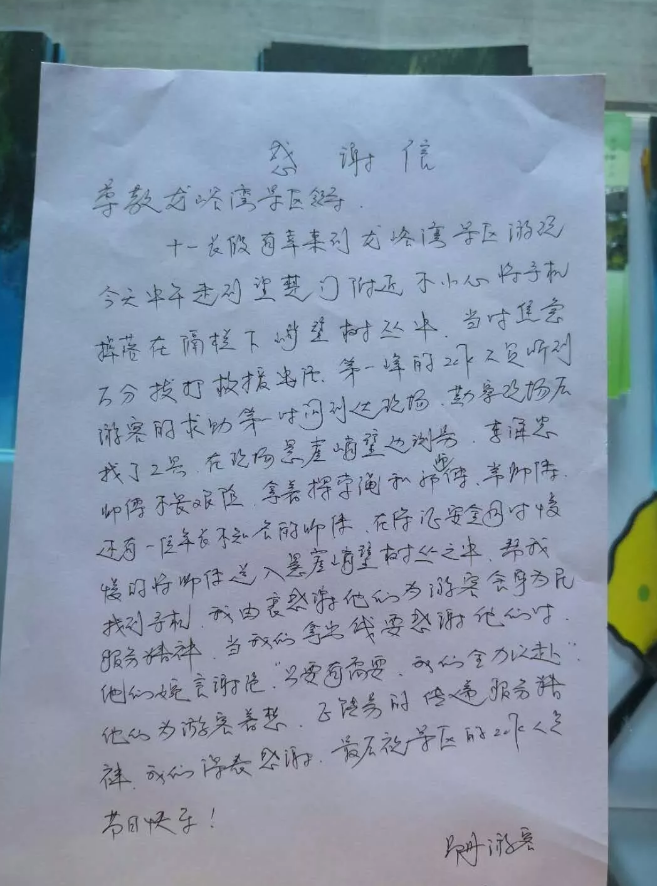 感谢信
尊敬龙峪湾景区领导.
十一长假有幸来到龙峪湾景区游玩
今天中午走到望楚门附近不小心将手机
摔落在隔栏下峭壁树丛中.当时焦急
万分拨打救援电话.第一峰的工作人员听到
游客的求助第一时间到达现场.勘察现场后
找了工具.在现场悬崖峭壁边
师傅不畏艰险.拿着探索绳和师傅.常师傅.
还有一位年长不知名的师傅.在保证安全同时慢
慢的将师傅送入悬崖峭壁树丛之中.帮我
找到手机.我由衷感谢他们为游客舍身为民
服务精神.当我们拿出钱要感谢他们时.
他们婉言谢绝."只要有需要.我们全力以赴".
他们为游客着想.正能量的传递服务精
神.我们深表感谢.最后祝景区的工作人员
节日快乐!
游客